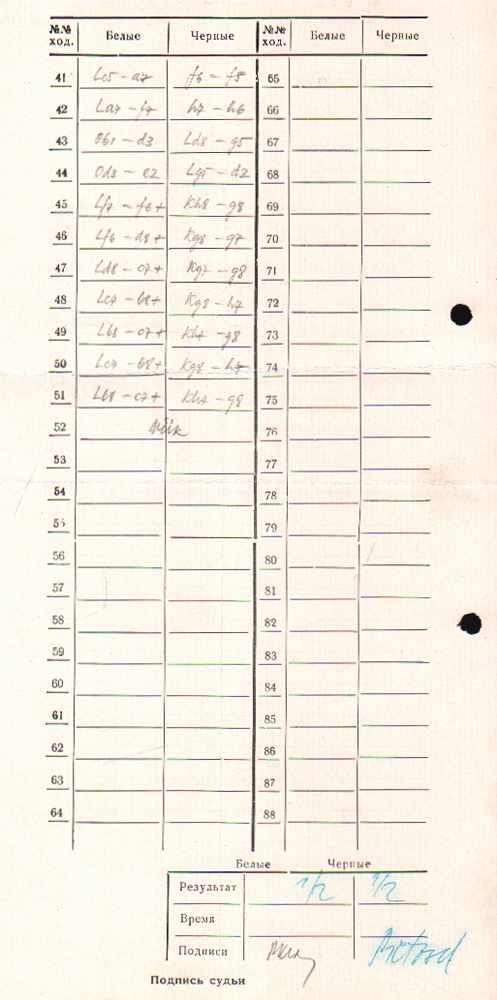 №№ ход. Белые Черные №№ ход. Белые Черные
41 Lc5 – a7 f6 – f5 65
42 La7 – f7 h7 – h6 66
43 Ob1 – d3 Ld8 – g5 67
44 Od3 – e2 Lg5 – d2 68
45 Lf7 – f6+ Kh8 – g8 69
46 Lf6 – d8+ Kg8 – g7 70
47 Ld8 – c7+ Kg7 – g8 71
48 Lc7 – b8+ Kg8 – h7 72
49 Lb8 – c7+ Kh7 – g8 73
50 Lc7 – b8+ Kg8 – h7 74
51 Lb8 – c7+ Kh7 – g8 75
52 viik 76
53 77
54 78
55 79
56 80
57 81
58 82
59 83
60 84
61 85
62 86
63 87
64 88
Белые Черные
Результат 1/2 1/2
Время
Подписи
Подпись судьи